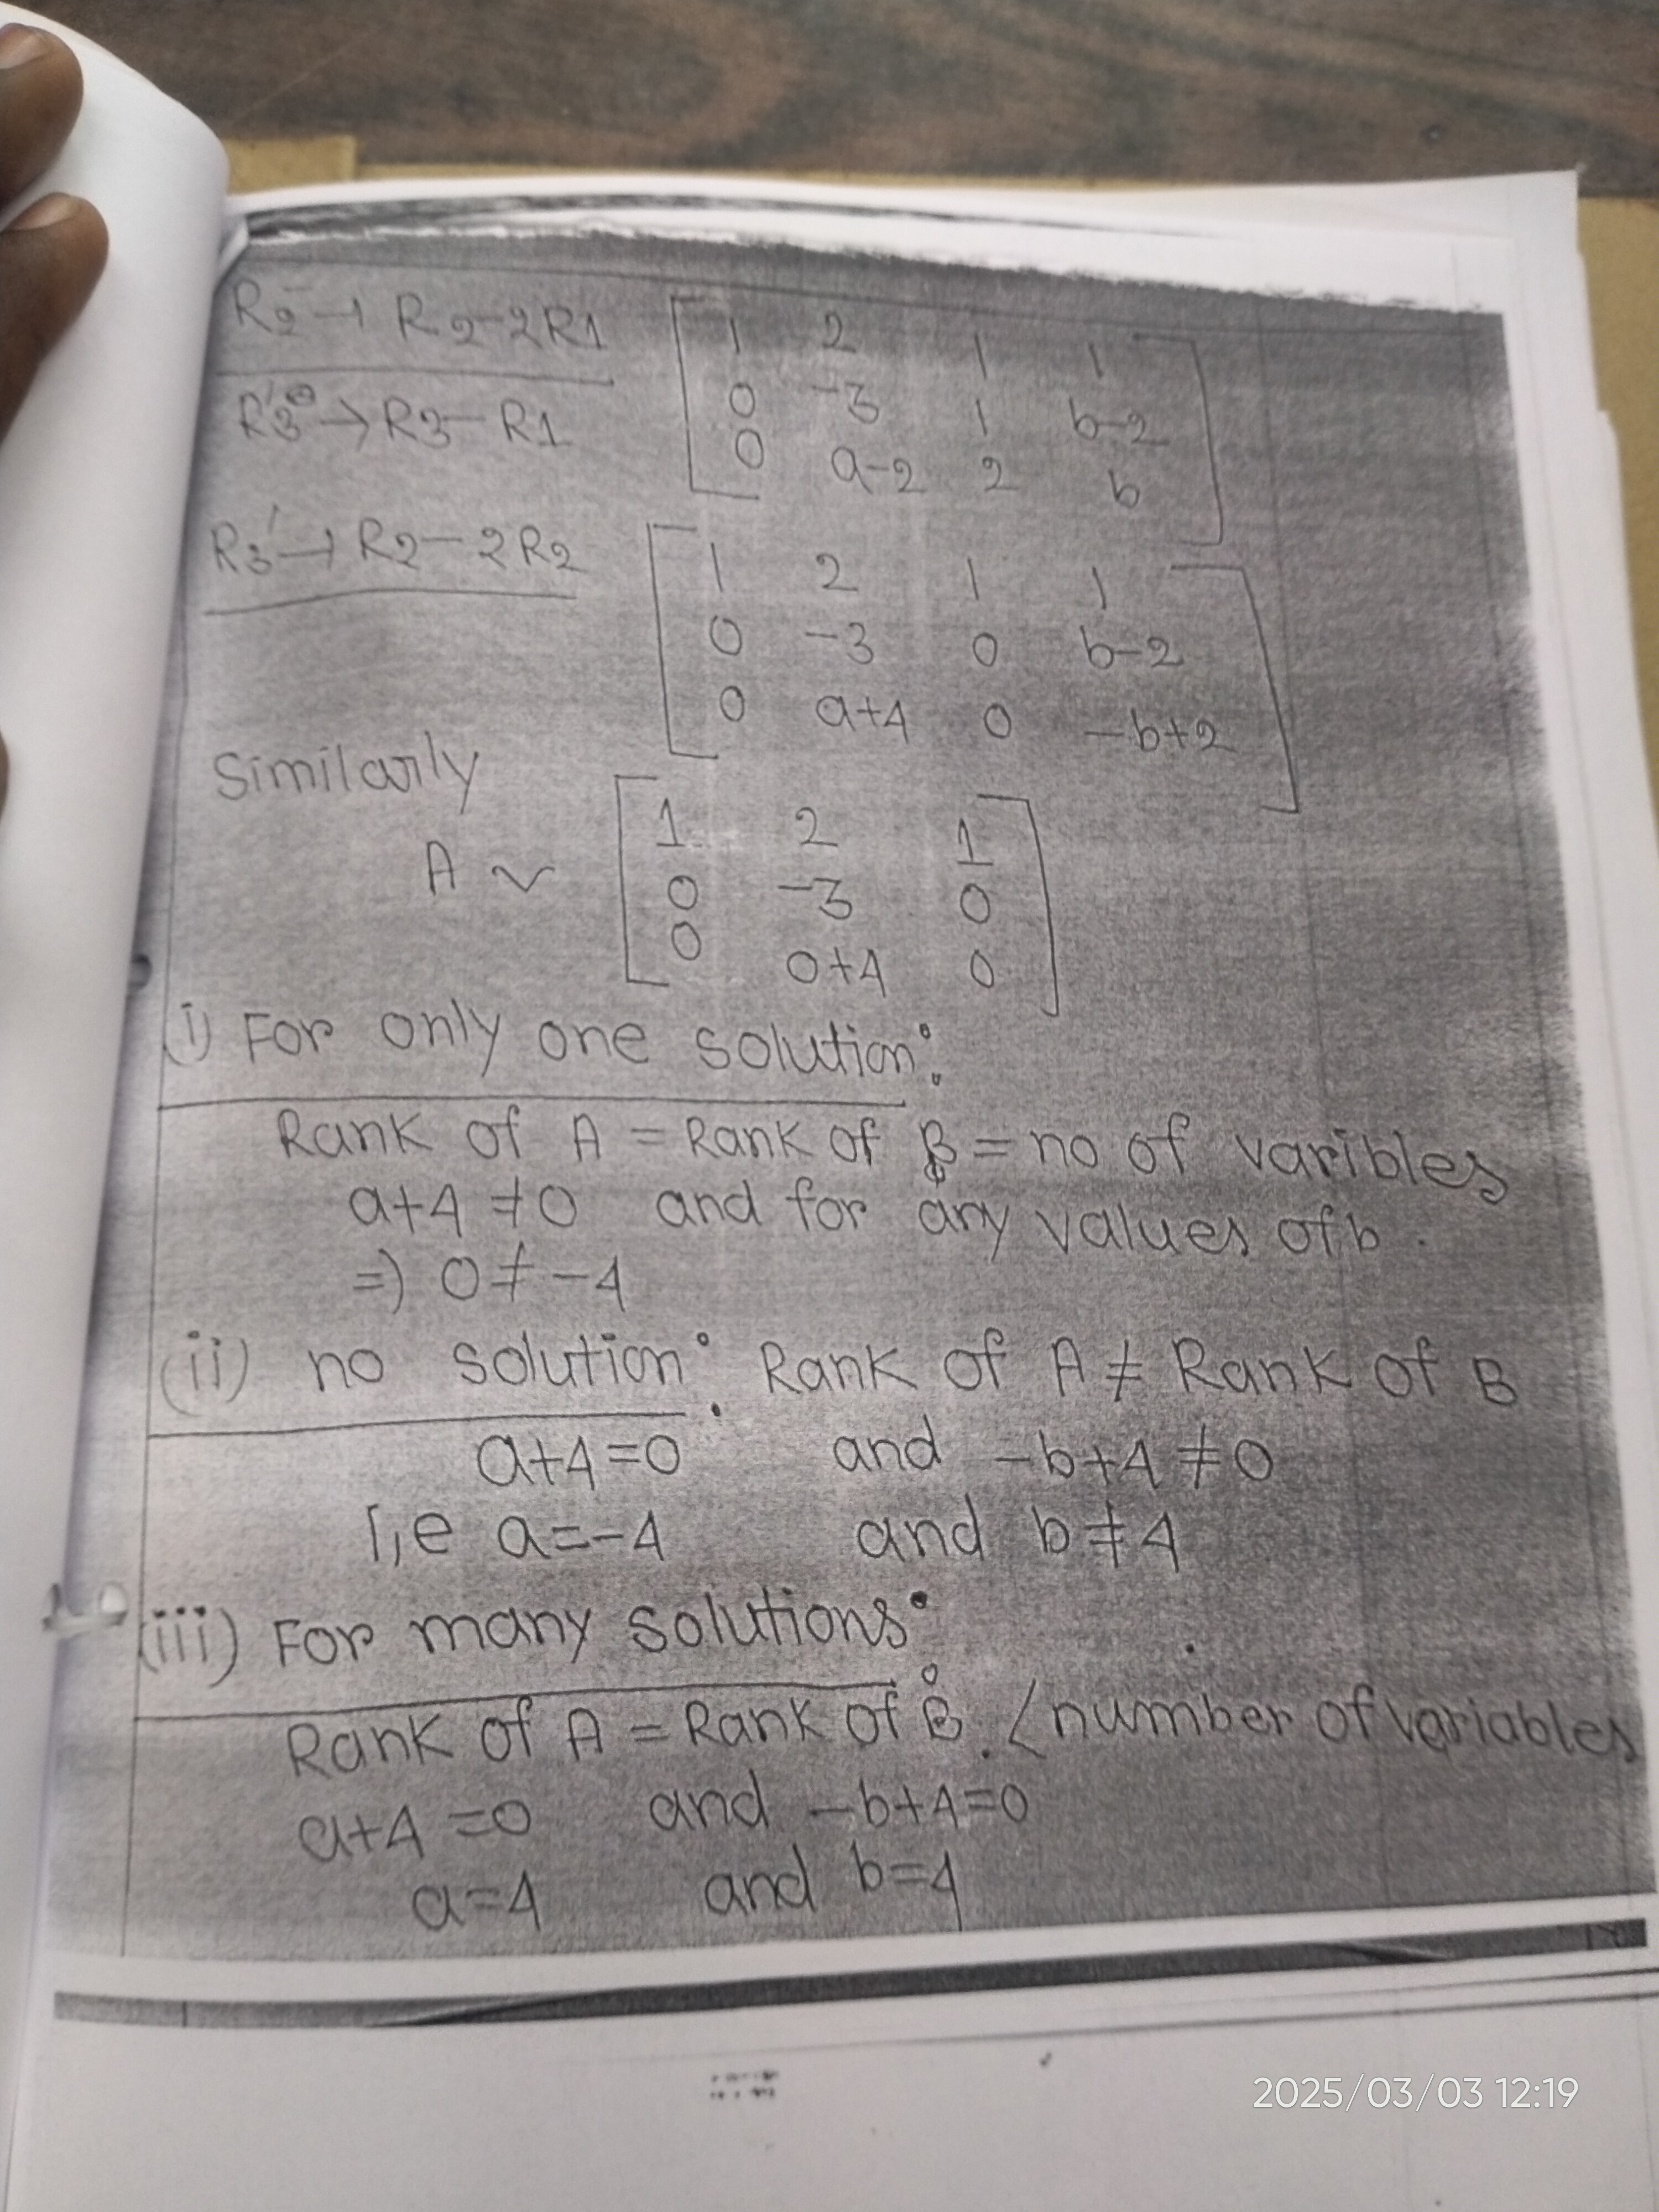 R2 → R2-2R1
[1 2 1 1
R3' → R3-R1
0 -3 1 b-2
0 a-2 2 b]
R3' → R2-2R2
[1 2 1 1
0 -3 0 b-2
0 a+4 0 -b+2]
Similarly
A ~ [1 2 1
0 -3 0
0 0+4 0]
(i) For only one solution:
Rank of A = Rank of B = no of varibles
a+4 ≠ 0 and for any values of b.
=) 0 ≠ -4
(ii) no solution: Rank of A ≠ Rank of B
a+4=0 and -b+4 ≠ 0
I,e a=-4 and b ≠ 4
(iii) For many solutions:
Rank of A = Rank of B. < number of variables
a+4=0 and -b+4=0
a=4 and b=4
2025/03/03 12:19